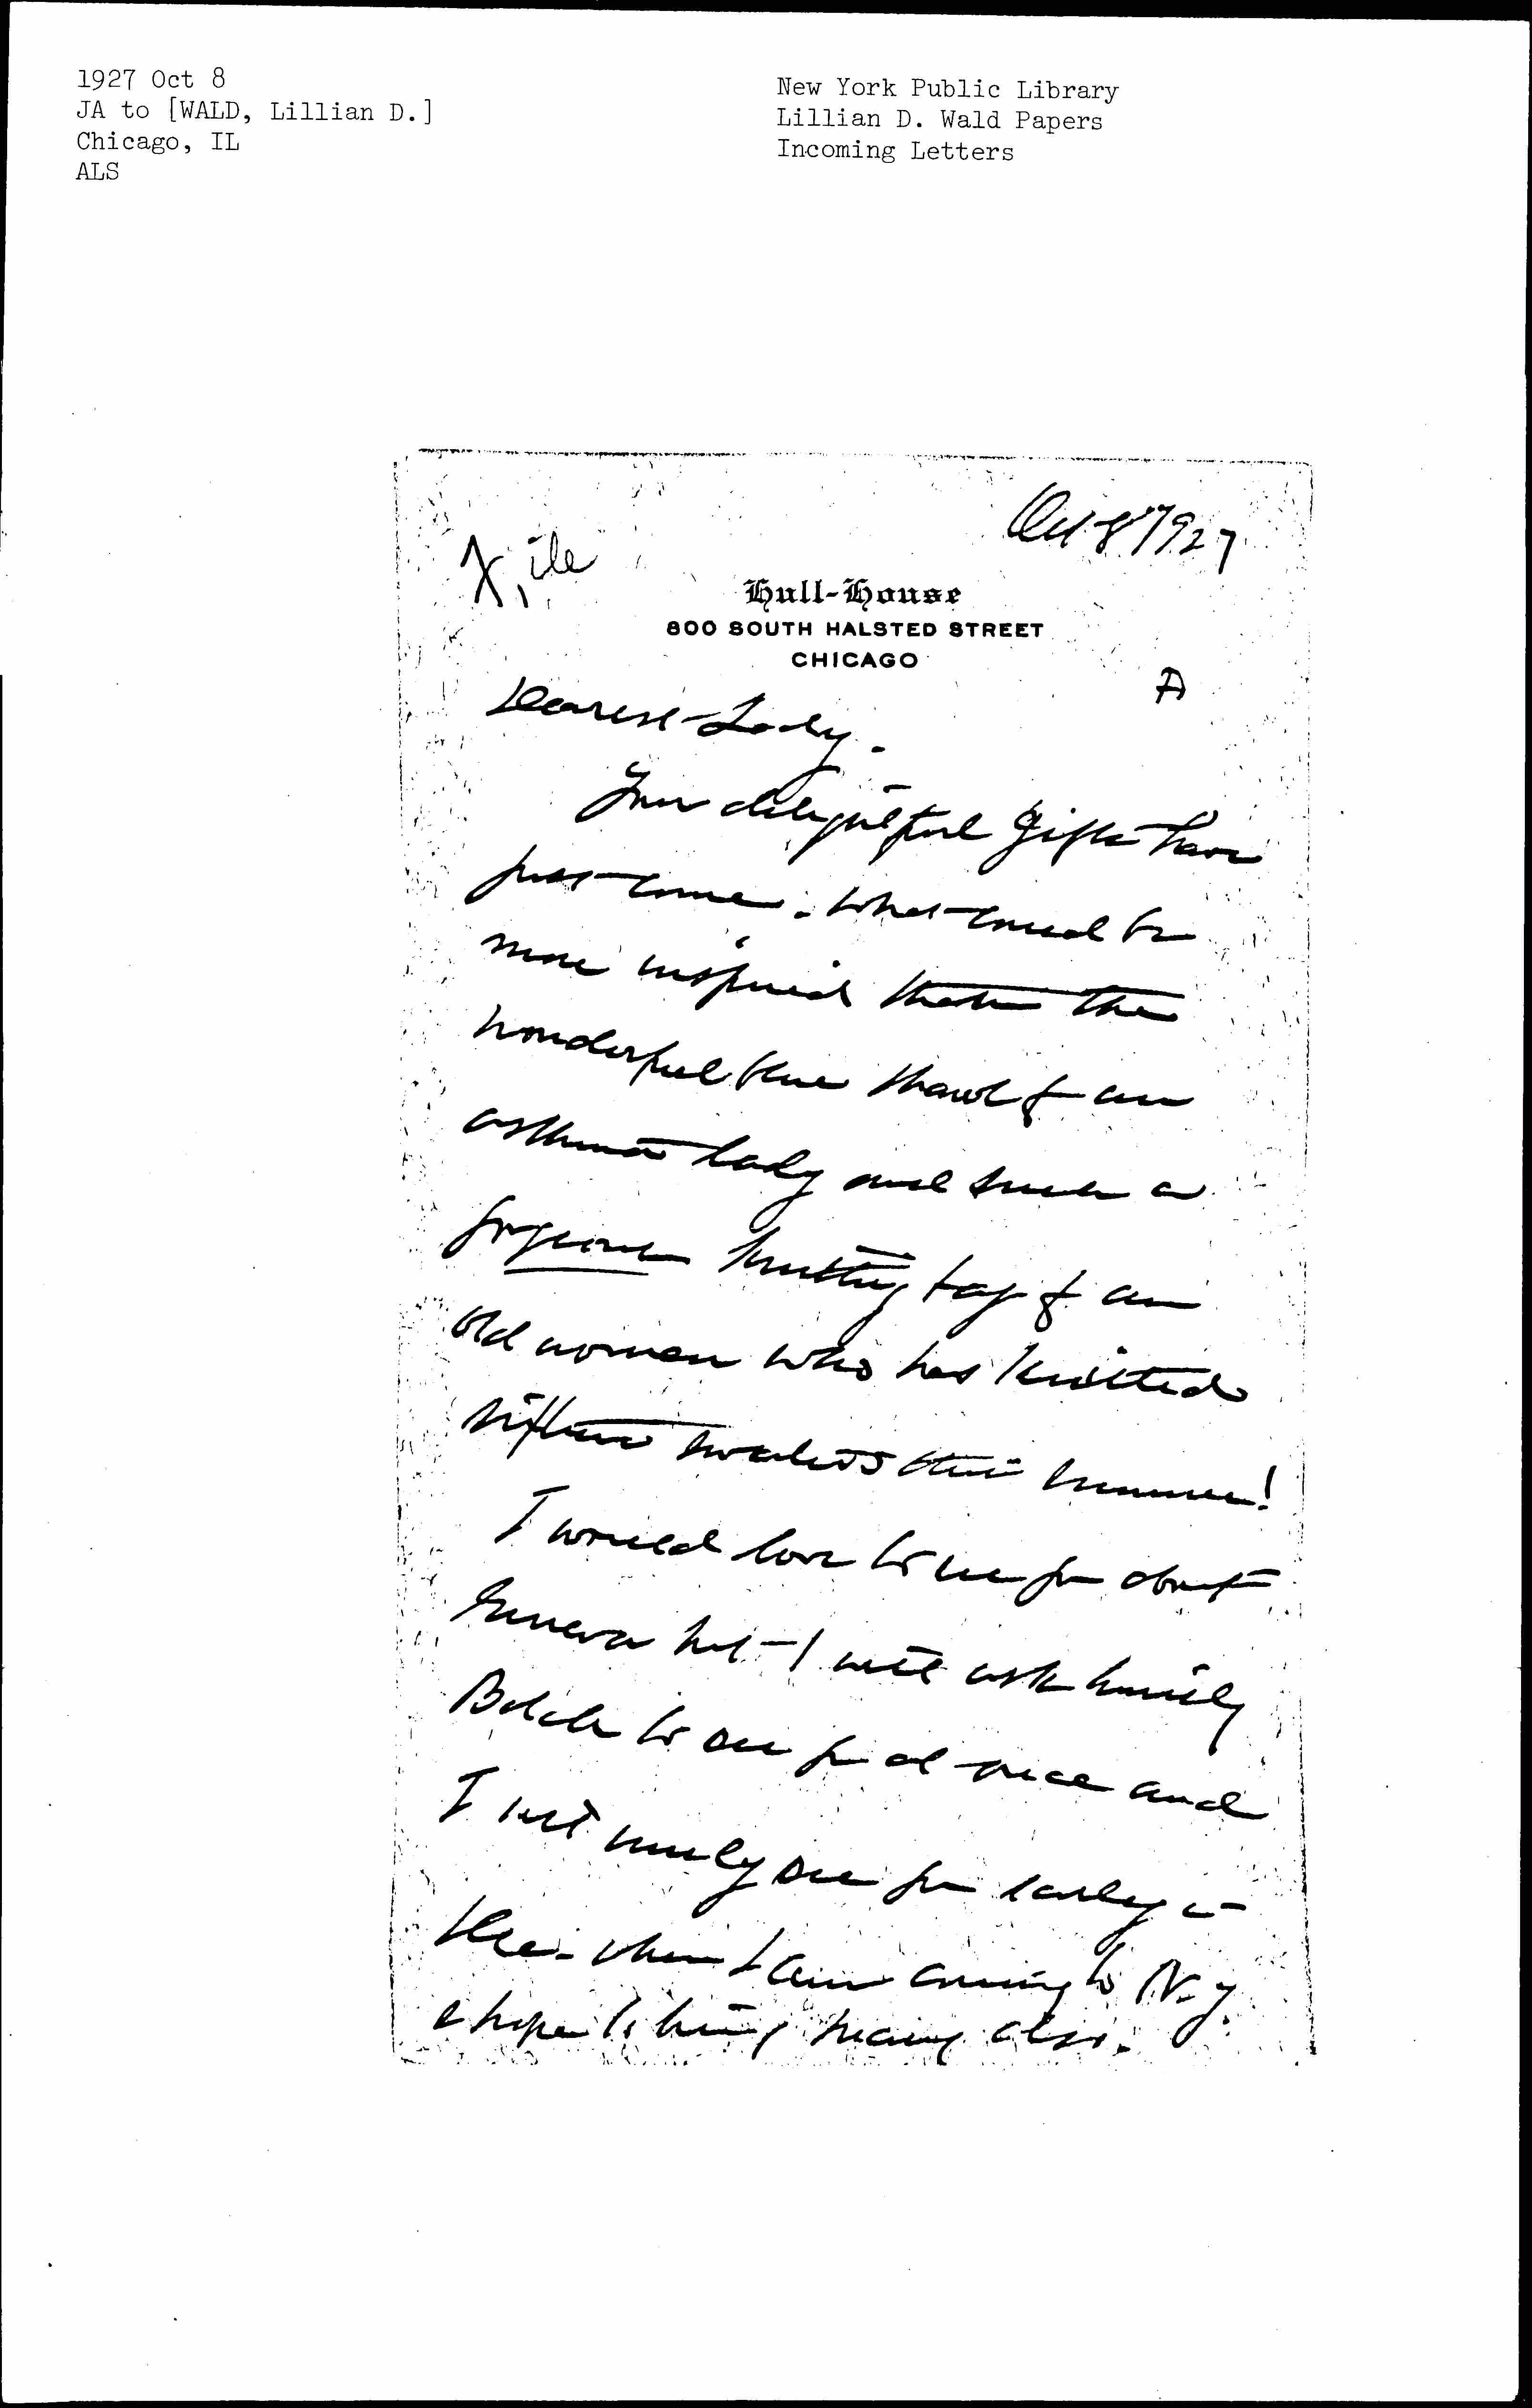 1927 Oct 8
JA to [WALD, Lillian D.]
Chicago, IL
ALS
New York Public Library
Lillian D. Wald Papers
Incoming Letters
Oct 8" 1927
File
Hull-House
800 SOUTH HALSTED STREET
CHICAGO
A
Dearest Lady.
Your delightful gifts have
just come. What could be
more inspired than the
wonderful blue shawl f an
asthma lady and such a
gorgeous knitting bag f an
old woman who has knitted
sixteen sweaters this summer!
I would love to see you about
Geneva but I will ask Emily
Balch to see you at once and
I will surely see you early in
Dec. when I am coming to N.Y.
& hope to bring Mary also.